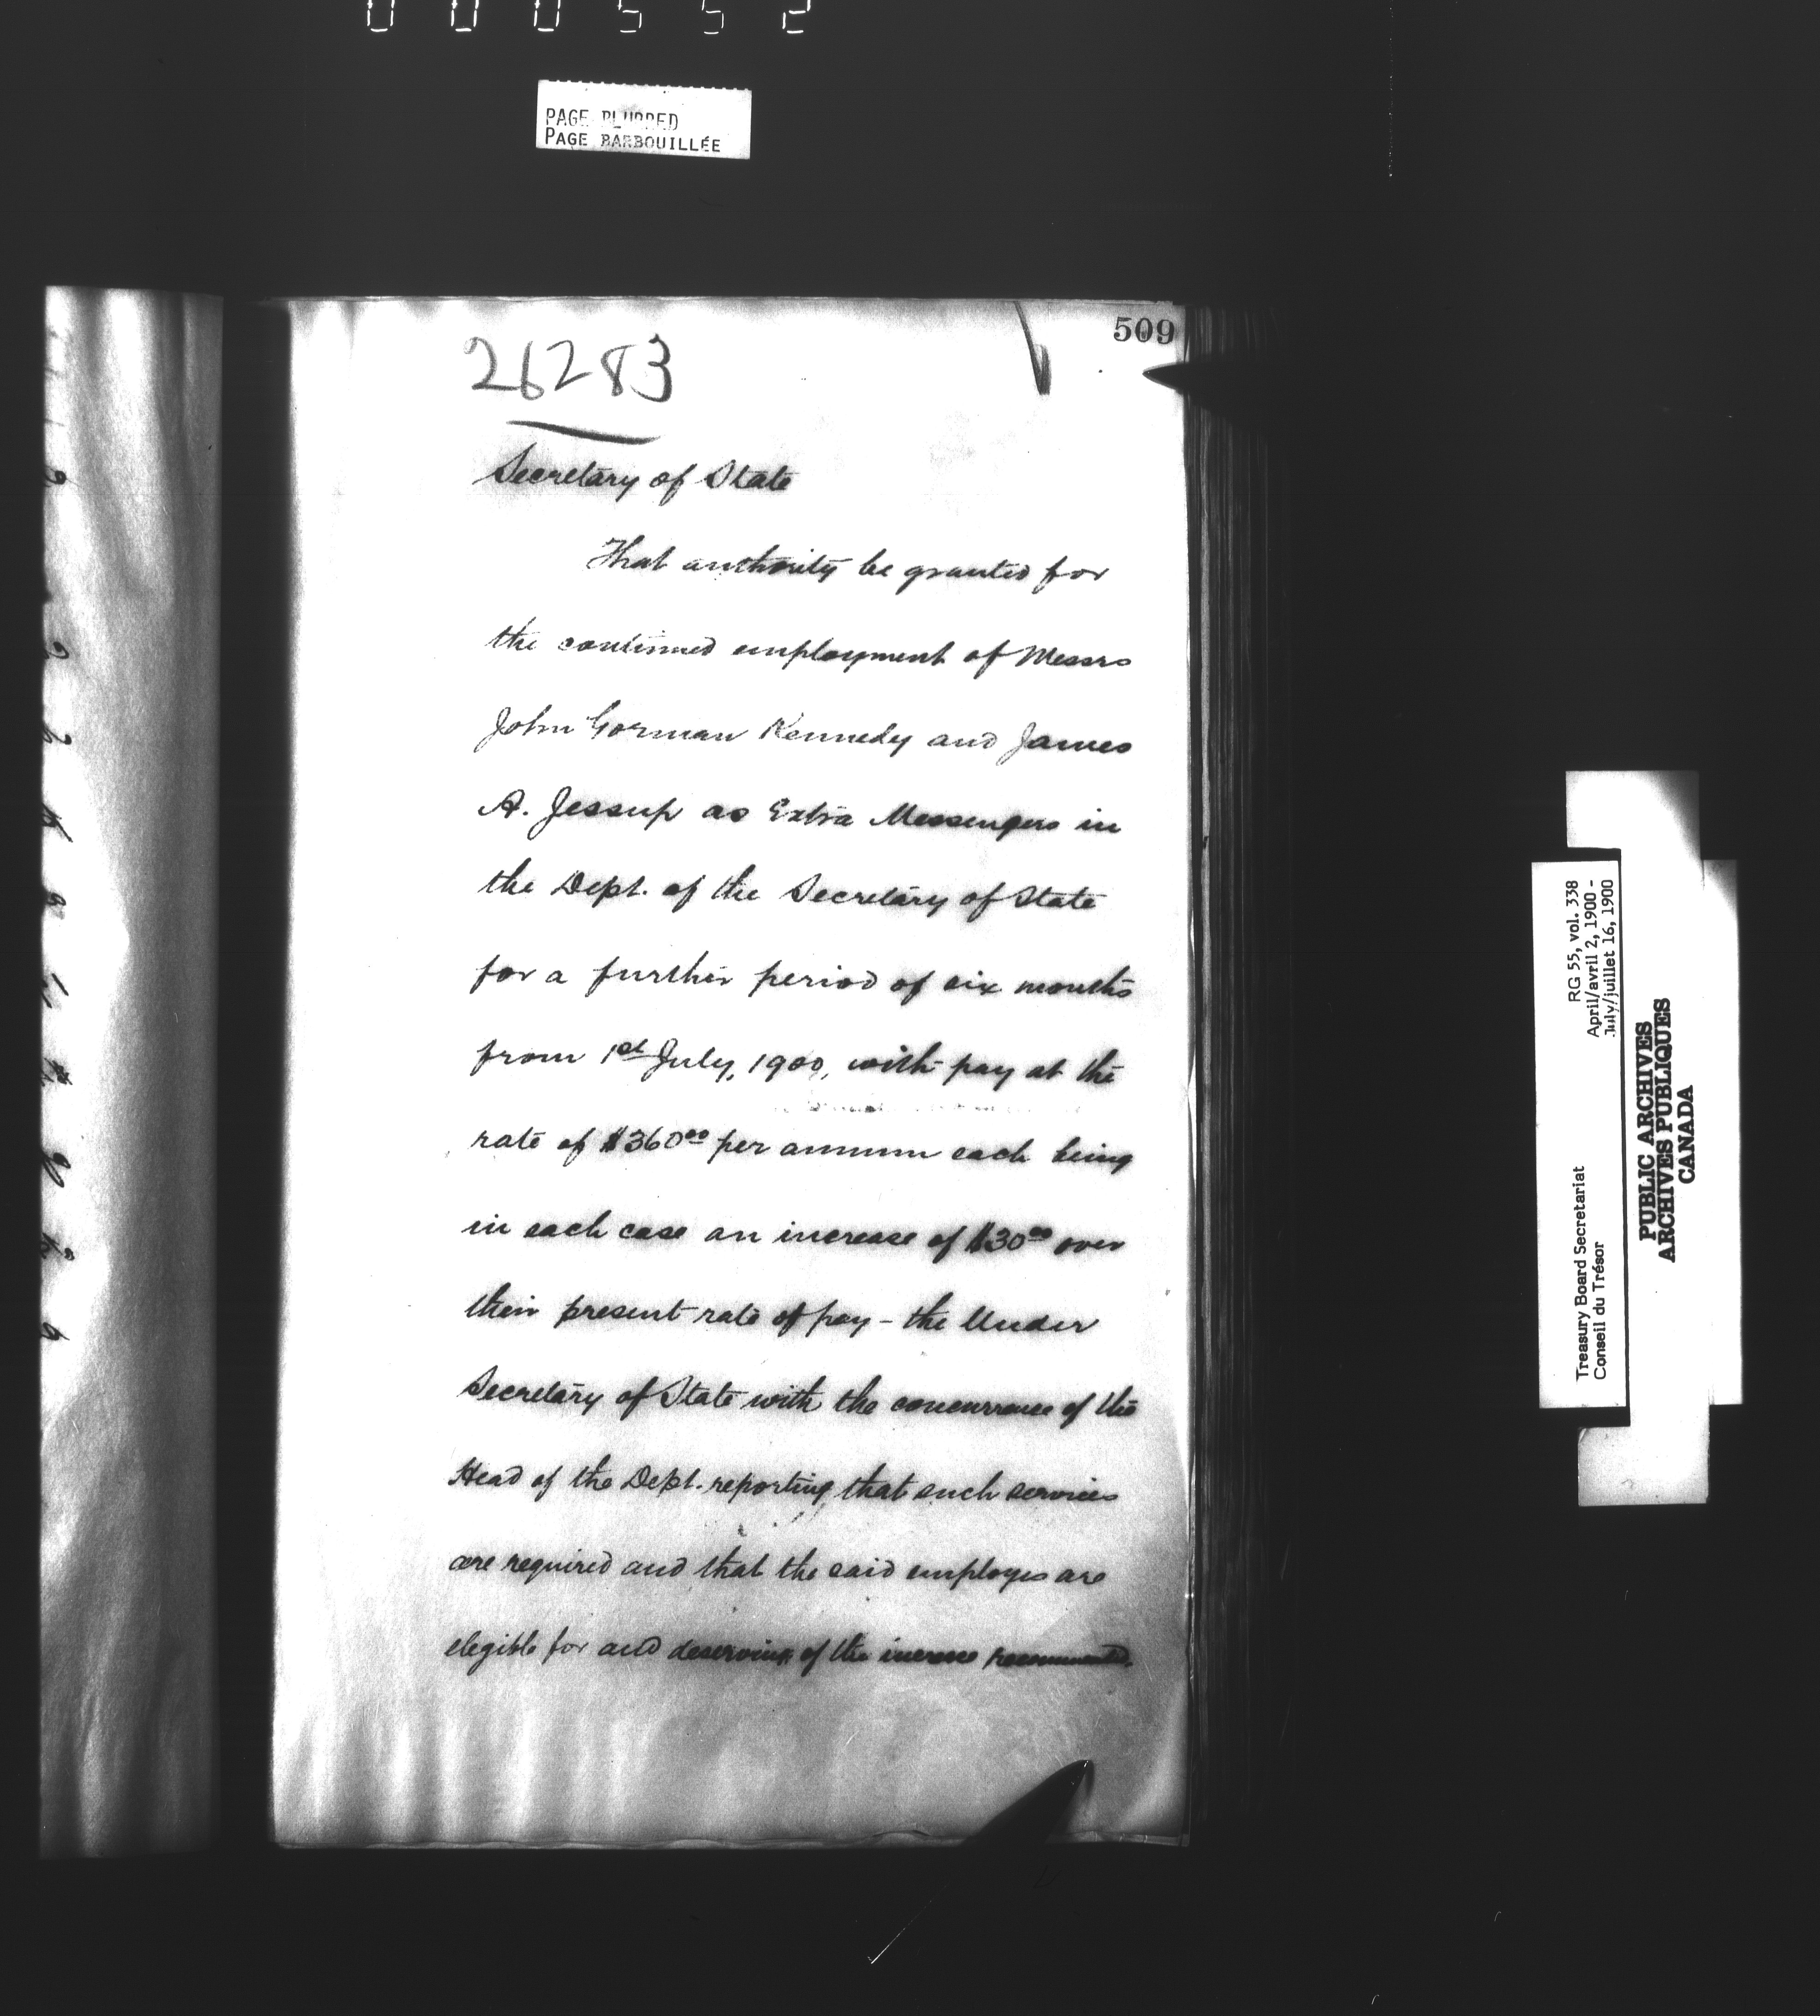 000552
PAGE BLURRED
PAGE BARBOUILLÉE
509
26283
Secretary of State
That authority be granted for
the continued employment of Messrs
John Gorman Kennedy and James
A. Jessup as Extra Messengers in
the Dept. of the Secretary of State
for a further period of six months
from 1st July, 1900, with pay at the
rate of $360.00 per annum each being
in each case an increase of $30.00 over
their present rate of pay - the Under
Secretary of State with the concurrence of the
Head of the Dept. reporting that such services
are required and that the said employes are
elegible for and deserving of the increase recommended.
RG 55, vol. 338
April/avril 2, 1900 -
July/juillet 16, 1900
Treasury Board Secretariat
Conseil du Trésor
PUBLIC ARCHIVES
ARCHIVES PUBLIQUES
CANADA